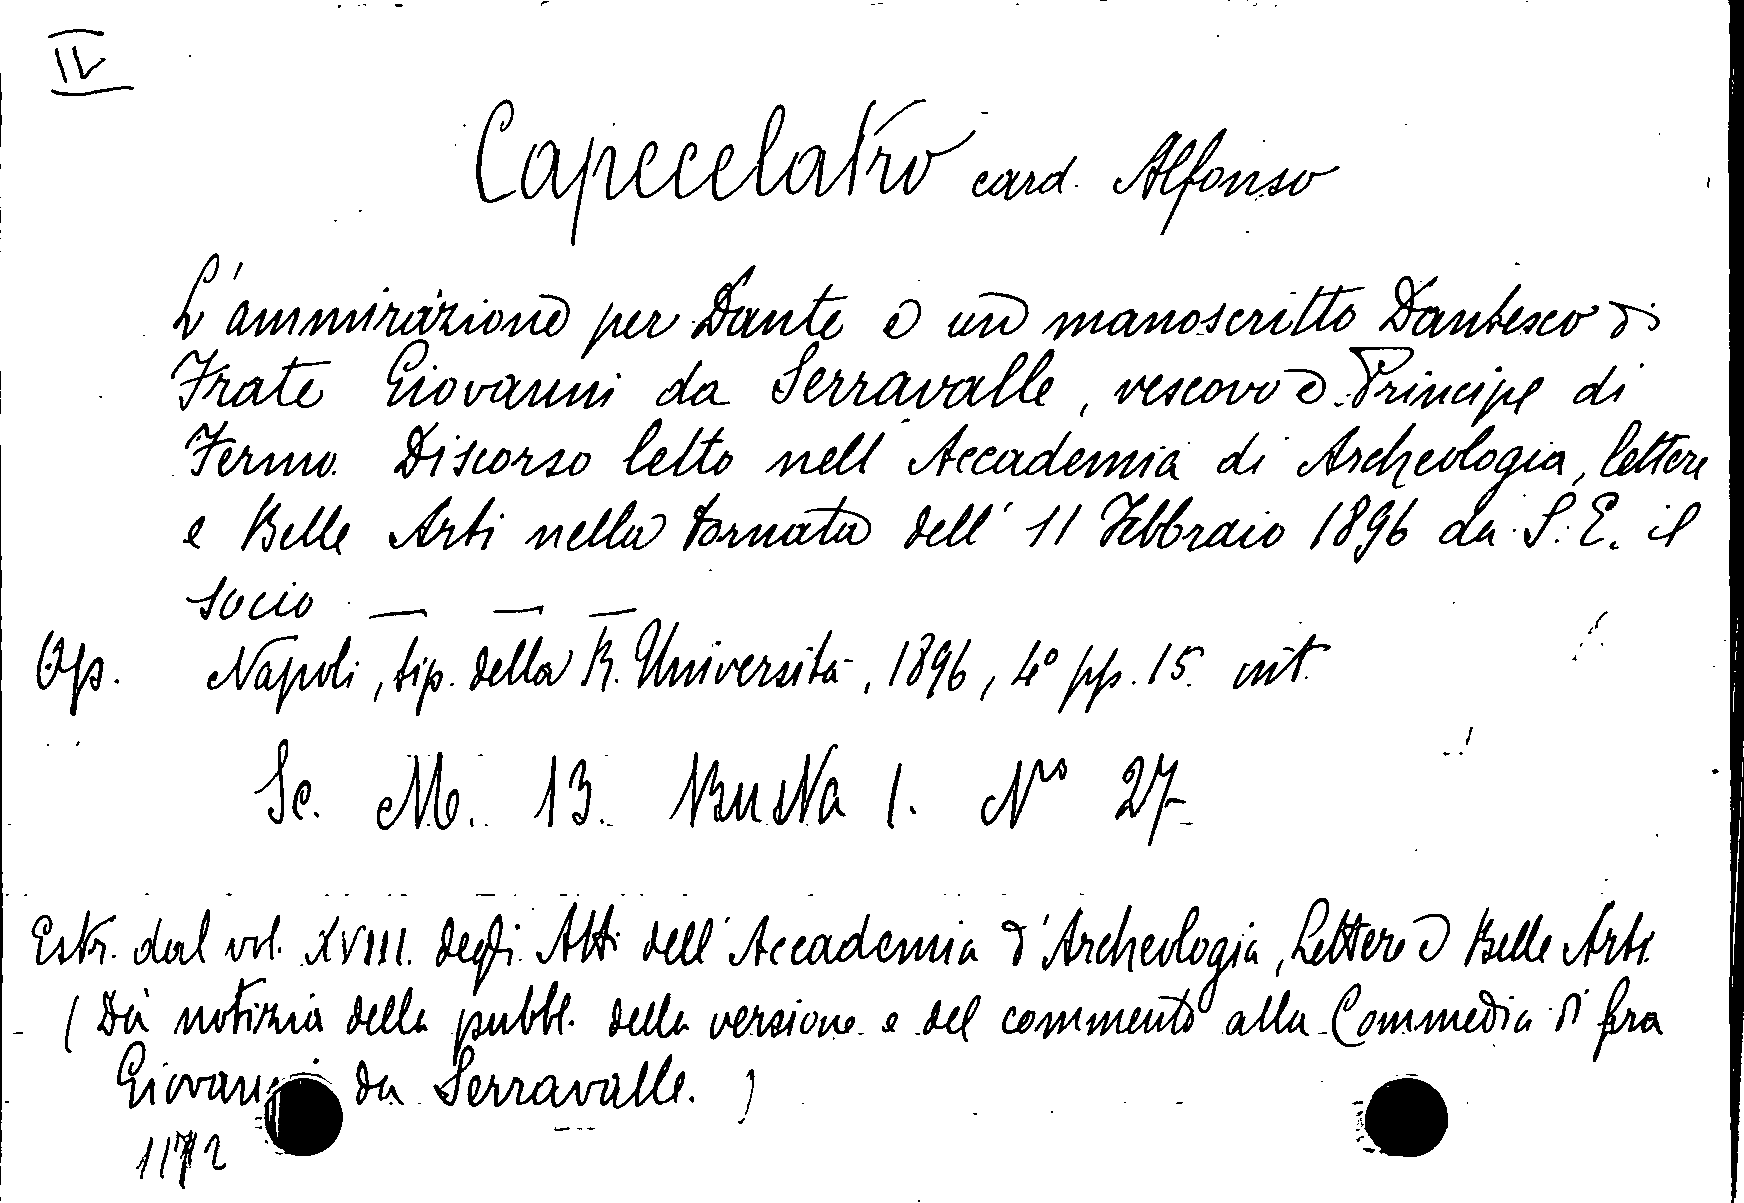 II
Capecelatro card. Alfonso
L'ammirazione per Dante e un manoscritto Dantesco di
Frate Giovanni da Serravalle, vescovo e Principe di
Fermo. Discorso letto nell'Accademia di Archeologia, lettere
e Belle Arti nella tornata dell' 11 Febbraio 1896 da S. E. il
socio — — —
Op. Napoli, tip. della R. Università, 1896, 4° pp. 15. int.
Sc. M. 13. Busta 1. N° 27
Estr. dal vol. XVIII. degli Atti dell'Accademia d'Archeologia, Lettere e Belle Arti.
(Dà notizia della pubbl. della versione e del commento alla Commedia di fra
Giovanni da Serravalle.)